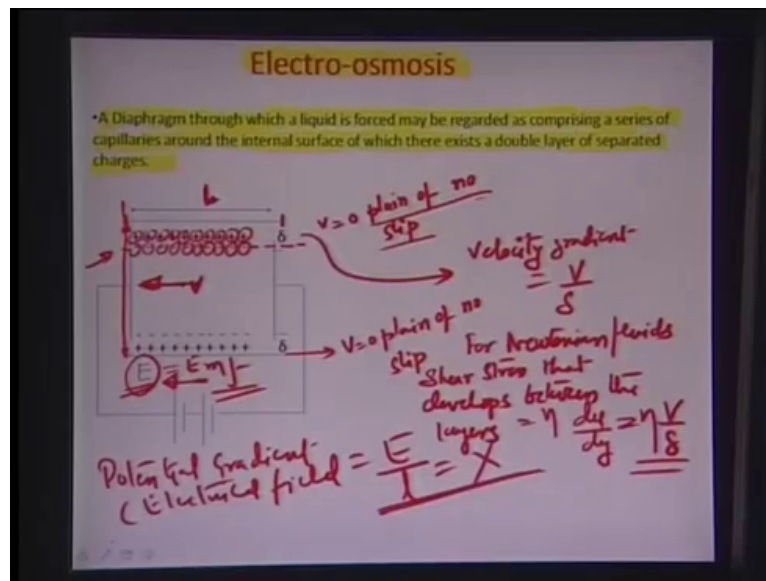 Electro-osmosis
•A Diaphragm through which a liquid is forced may be regarded as comprising a series of
capillaries around the internal surface of which there exists a double layer of separated
charges.
L
V=0 plain of no
slip
δ
Velocity gradient
= V/δ
V
- - - - - - - - - -
+ + + + + + + + + +
δ
V=0 plain of no
slip
E = Emf
For Newtonian fluids
Shear stress that
develops between the
layers = η du/dy = η V/δ
Potential Gradient
(Electrical field = E/l = X